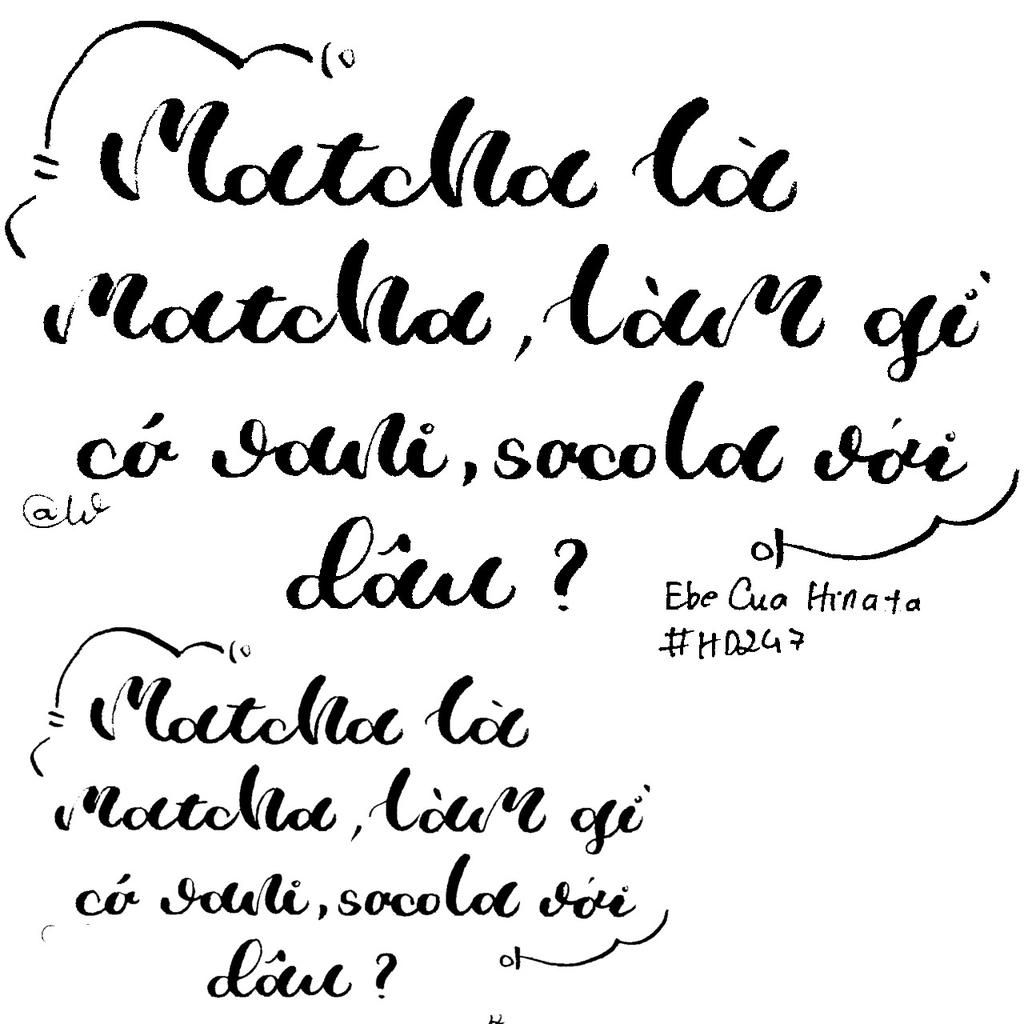 Matcha là
matcha, làm gì
có vani, socola với
dâu ?
@W
Ebe Cua Hinata
#HD247
Matcha là
matcha, làm gì
có vani, socola với
dâu ?